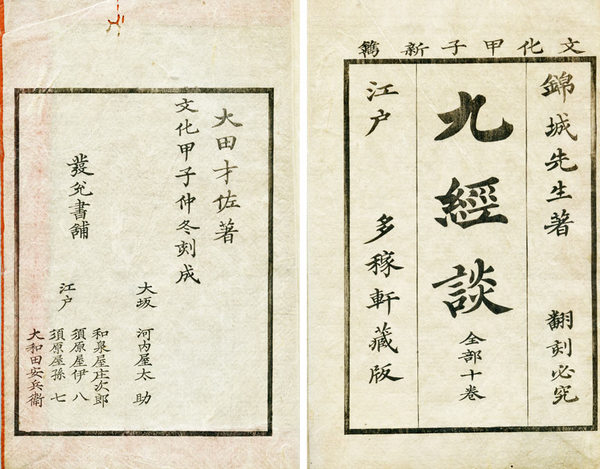 文化甲子新鐫
錦城先生著 翻刻必究
九經談 全部十卷
江戶 多稼軒藏版
大田才佐著
文化甲子仲冬刻成
發兌書舖
大坂 河内屋太助
江戶
和泉屋庄次郎
須原屋伊八
須原屋孫七
大和田安兵衞